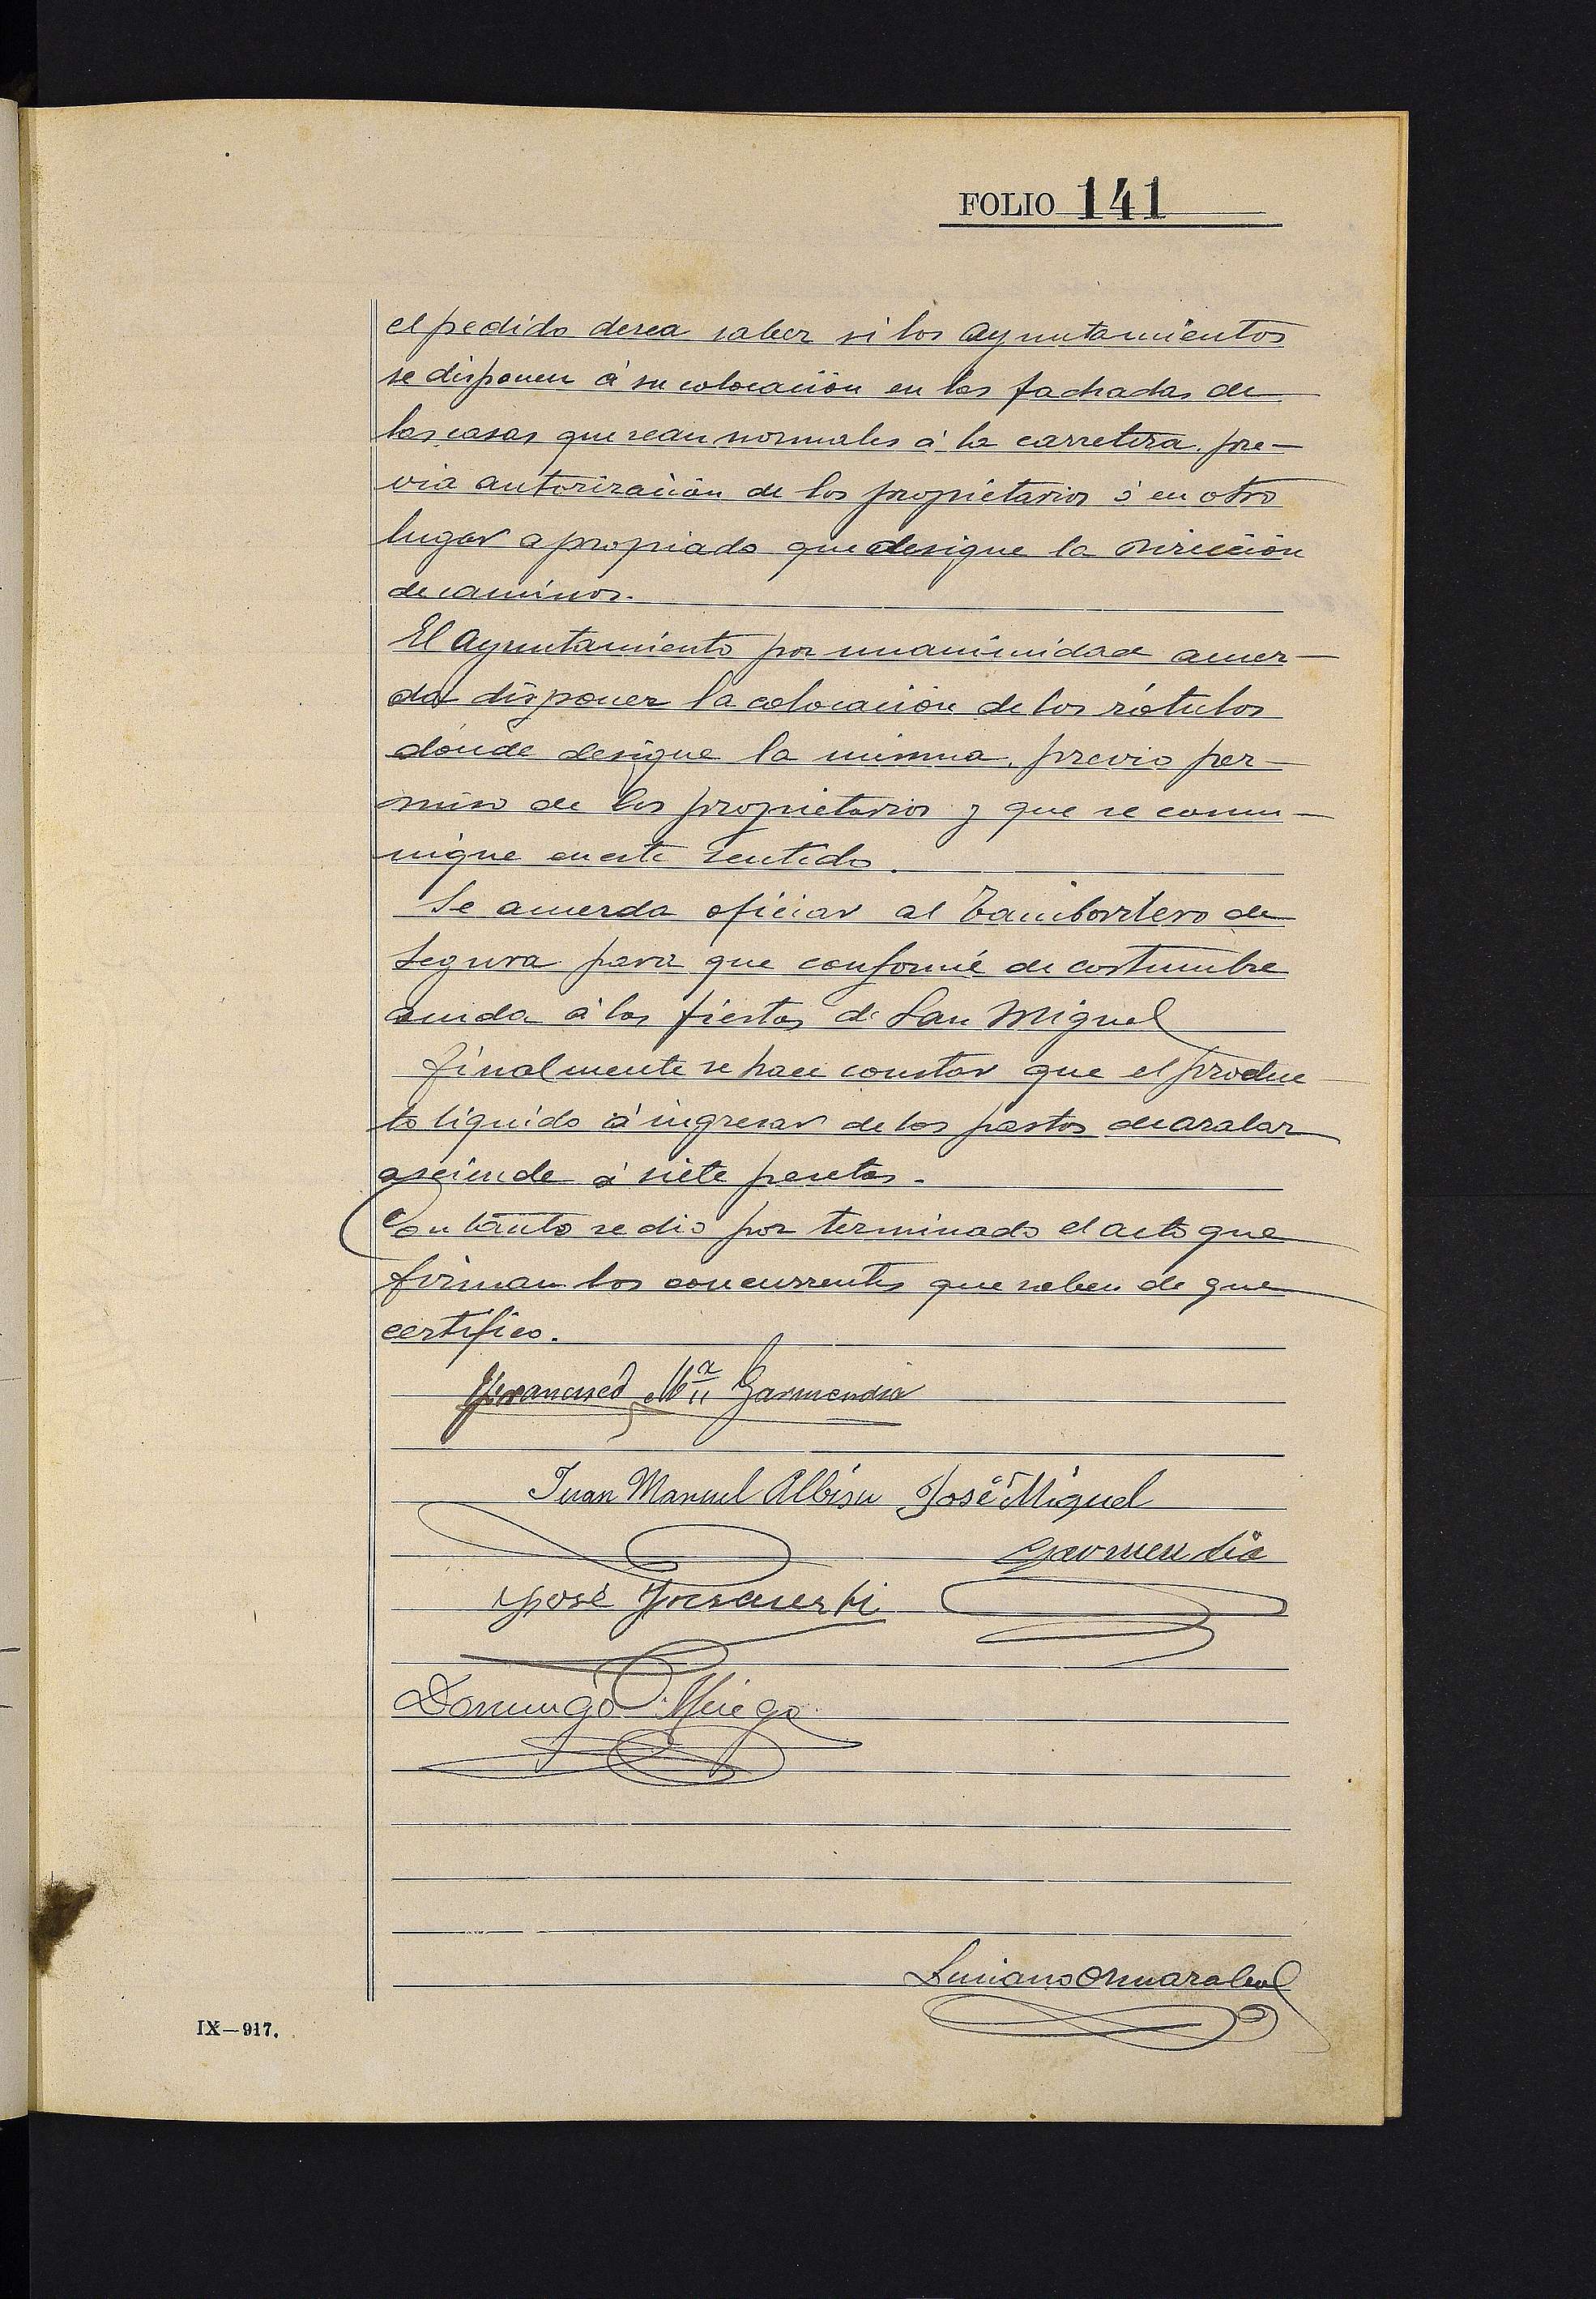 FOLIO 141
el pedido desea saber si los Ayuntamientos
se disponen á su colocación en las fachadas de
las casas que sean normales á la carretera, pre-
via autorización de los propietarios ó en otro
lugar apropiado que designe la Dirección
de caminos.
El Ayuntamiento por unanimidad acuer-
da disponer la colocación de los rótulos
donde designe la misma, previo per-
miso de los propietarios y que se comu-
nique en este sentido.
Se acuerda oficiar al Tamborilero de
Segura para que conforme de costumbre
acuda á las fiestas de San Miguel
Finalmente se hace constar que el produc-
to líquido á ingresar de los pastos de aralar
asciende á siete pesetas.
Con tanto se dió por terminado el acto que
firman los concurrentes que saben de que
certifico.
Francisco Mª Garmendia
Juan Manuel Albisu José Miguel
Garmendia
José
Domingo
Luciano
IX—917.